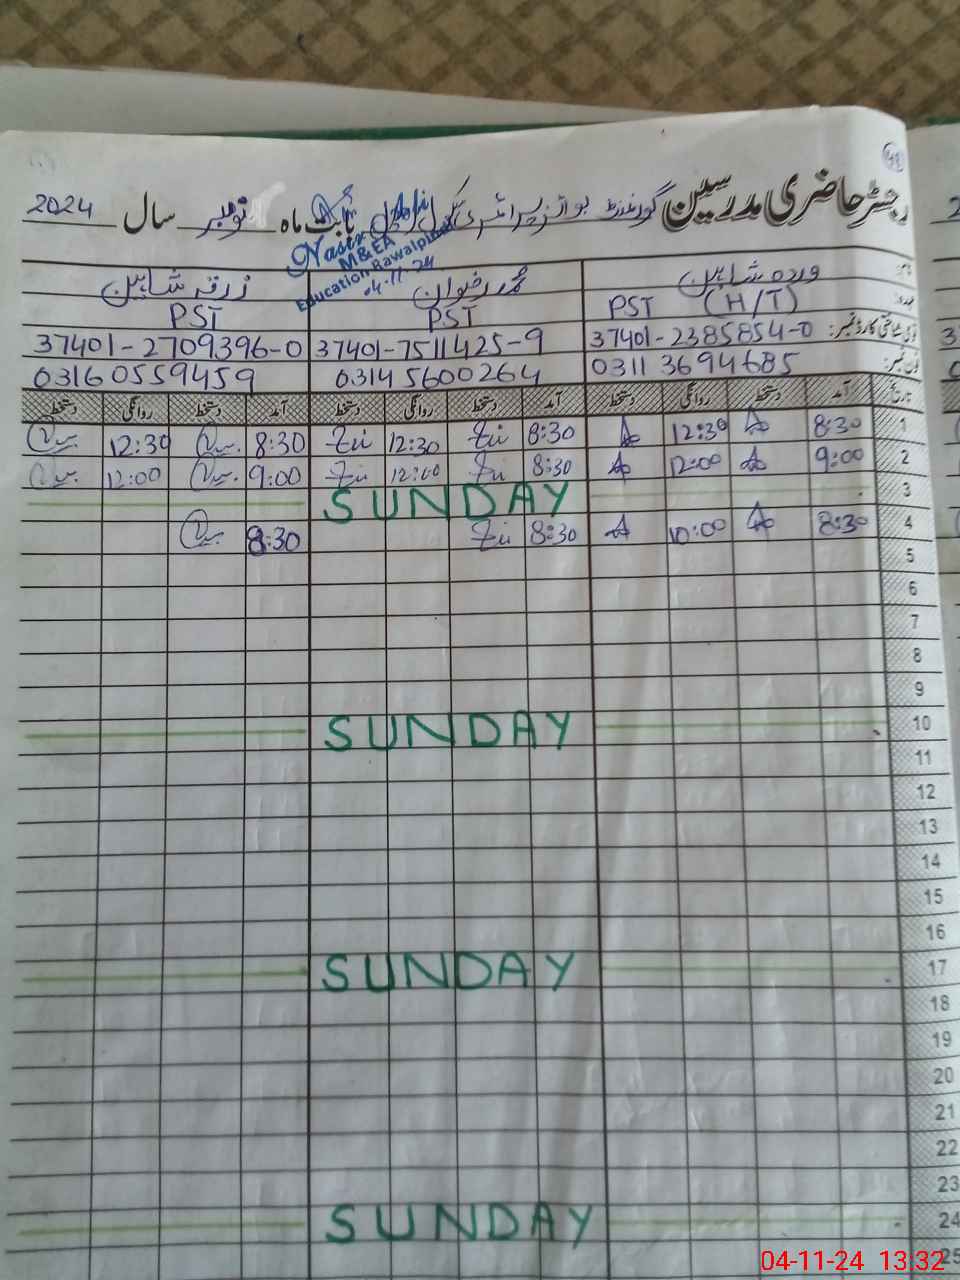 رجسٹر حاضری مدرسین گورنمنٹ بوائز پرائمری سکول بابت ماہ نومبر سال 2024
Nasir
M&EA
Education Rawalpindi
04-11-24
وردہ شاہین محمد رضوان زرقہ شاہین
PST (H/T) PST PST
قومی شناختی کارڈ نمبر: 37401-2385854-0 37401-7511425-9 37401-2709396-0
فون نمبر: 0311 3694685 03145600264 03160559459
تاریخ آمد دستخط روانگی دستخط آمد دستخط روانگی دستخط آمد دستخط روانگی دستخط
1 8:30 12:30 8:30 12:30 8:30 12:30
2 9:00 12:00 8:30 12:00 9:00 12:00
3 SUNDAY
4 8:30 10:00 8:30 8:30
5
6
7
8
9
10 SUNDAY
11
12
13
14
15
16
17 SUNDAY
18
19
20
21
22
23
24 SUNDAY
25
04-11-24 13:32